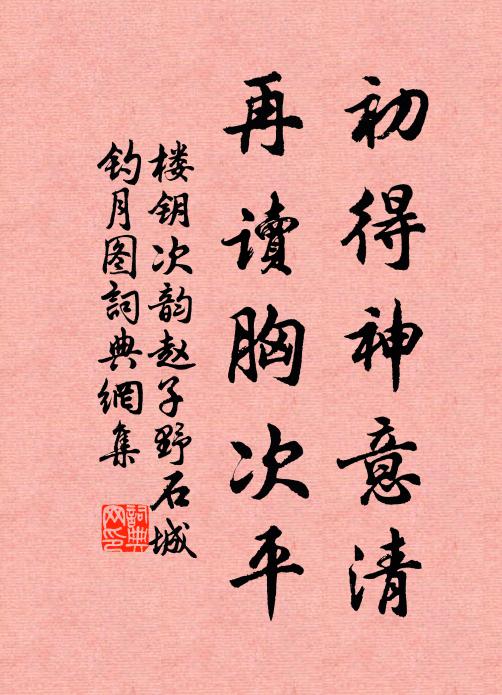 初得神意清
再讀胸次平
楼钥次韵赵子野石城
钓月图詞典網集
詞典
网印